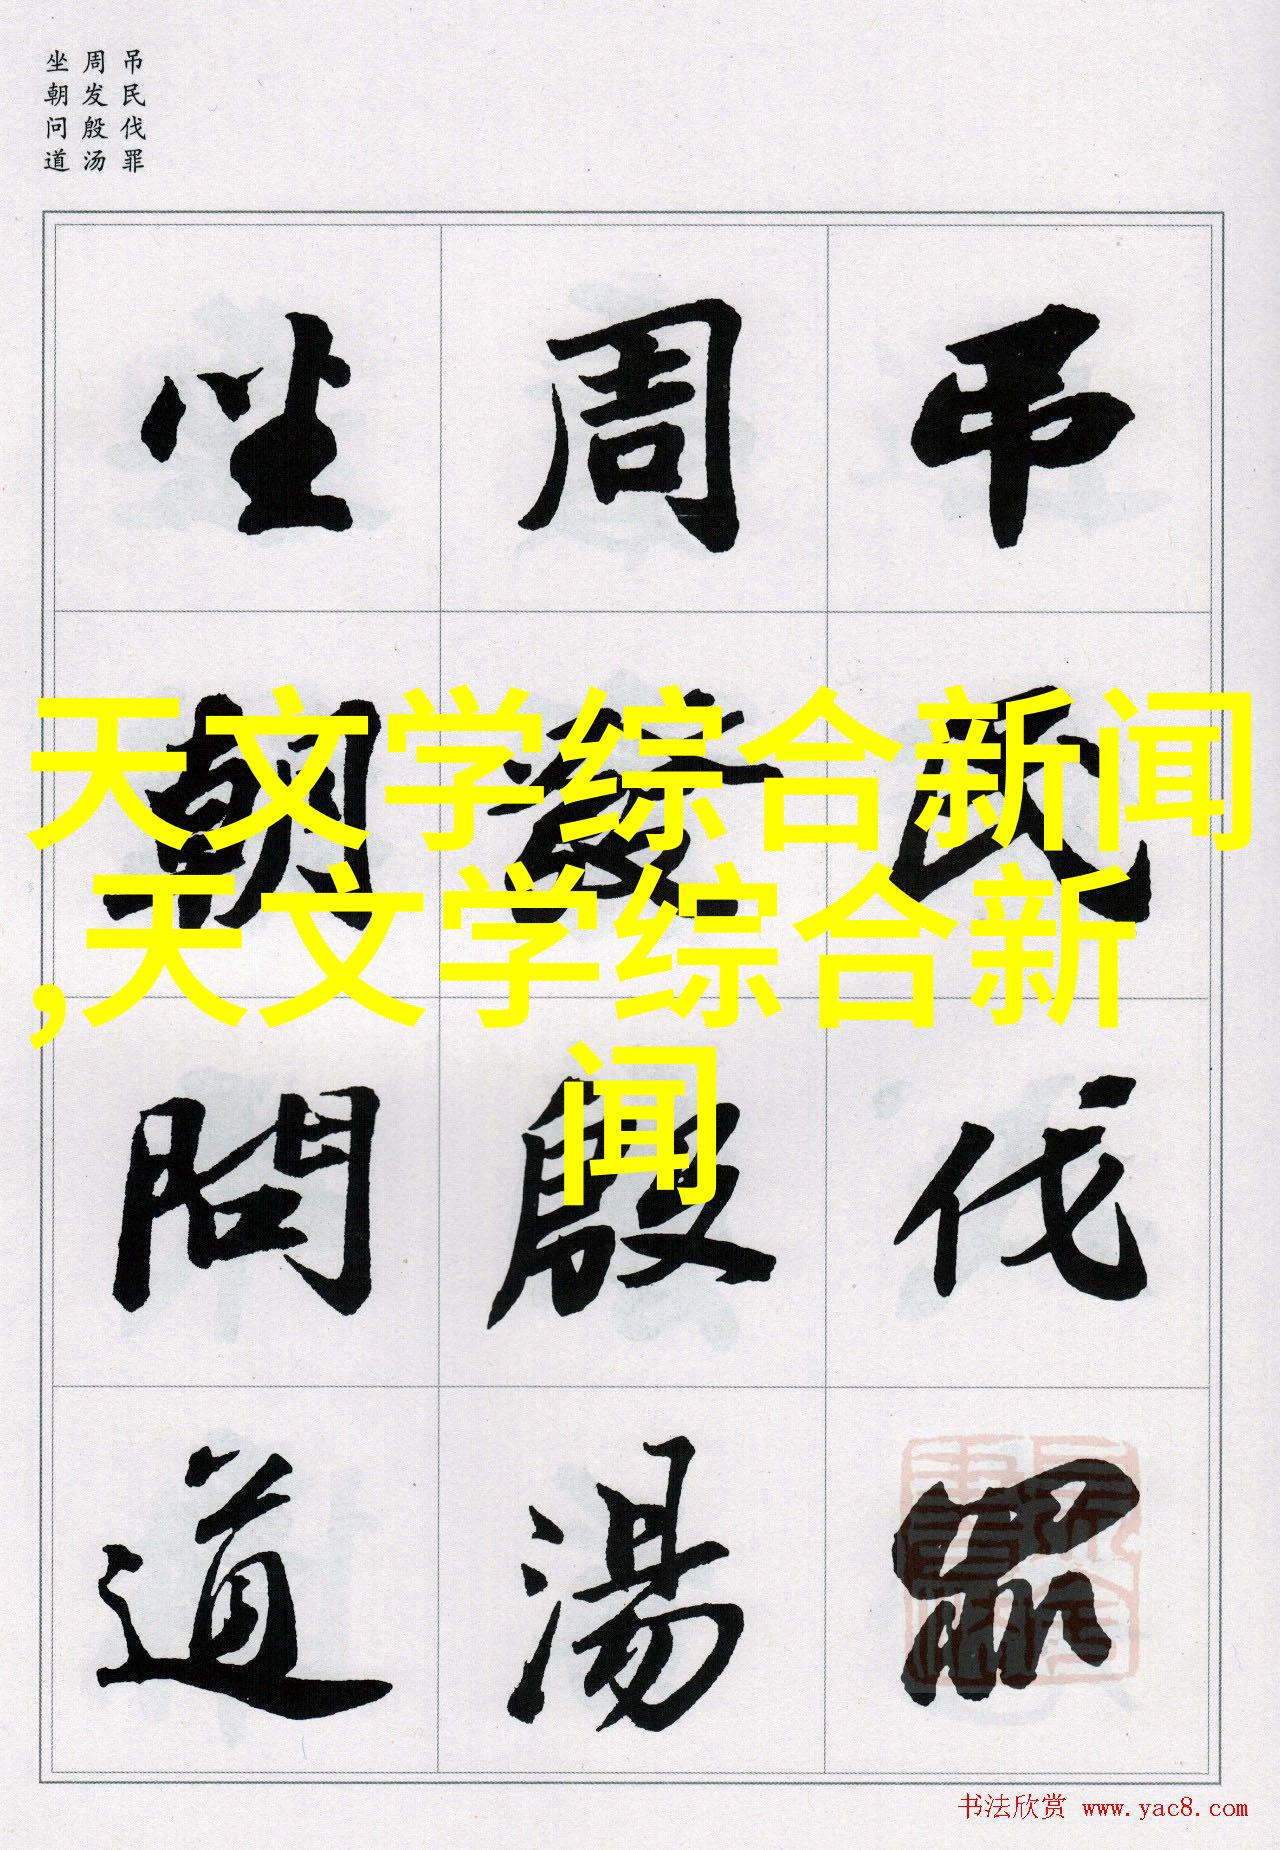 吊民伐罪
周发殷汤
坐朝问道
吊民伐罪
周發殷湯
坐朝問道
天文学综合新闻
,天文学综合新
闻
书法欣赏 www.yac8.com